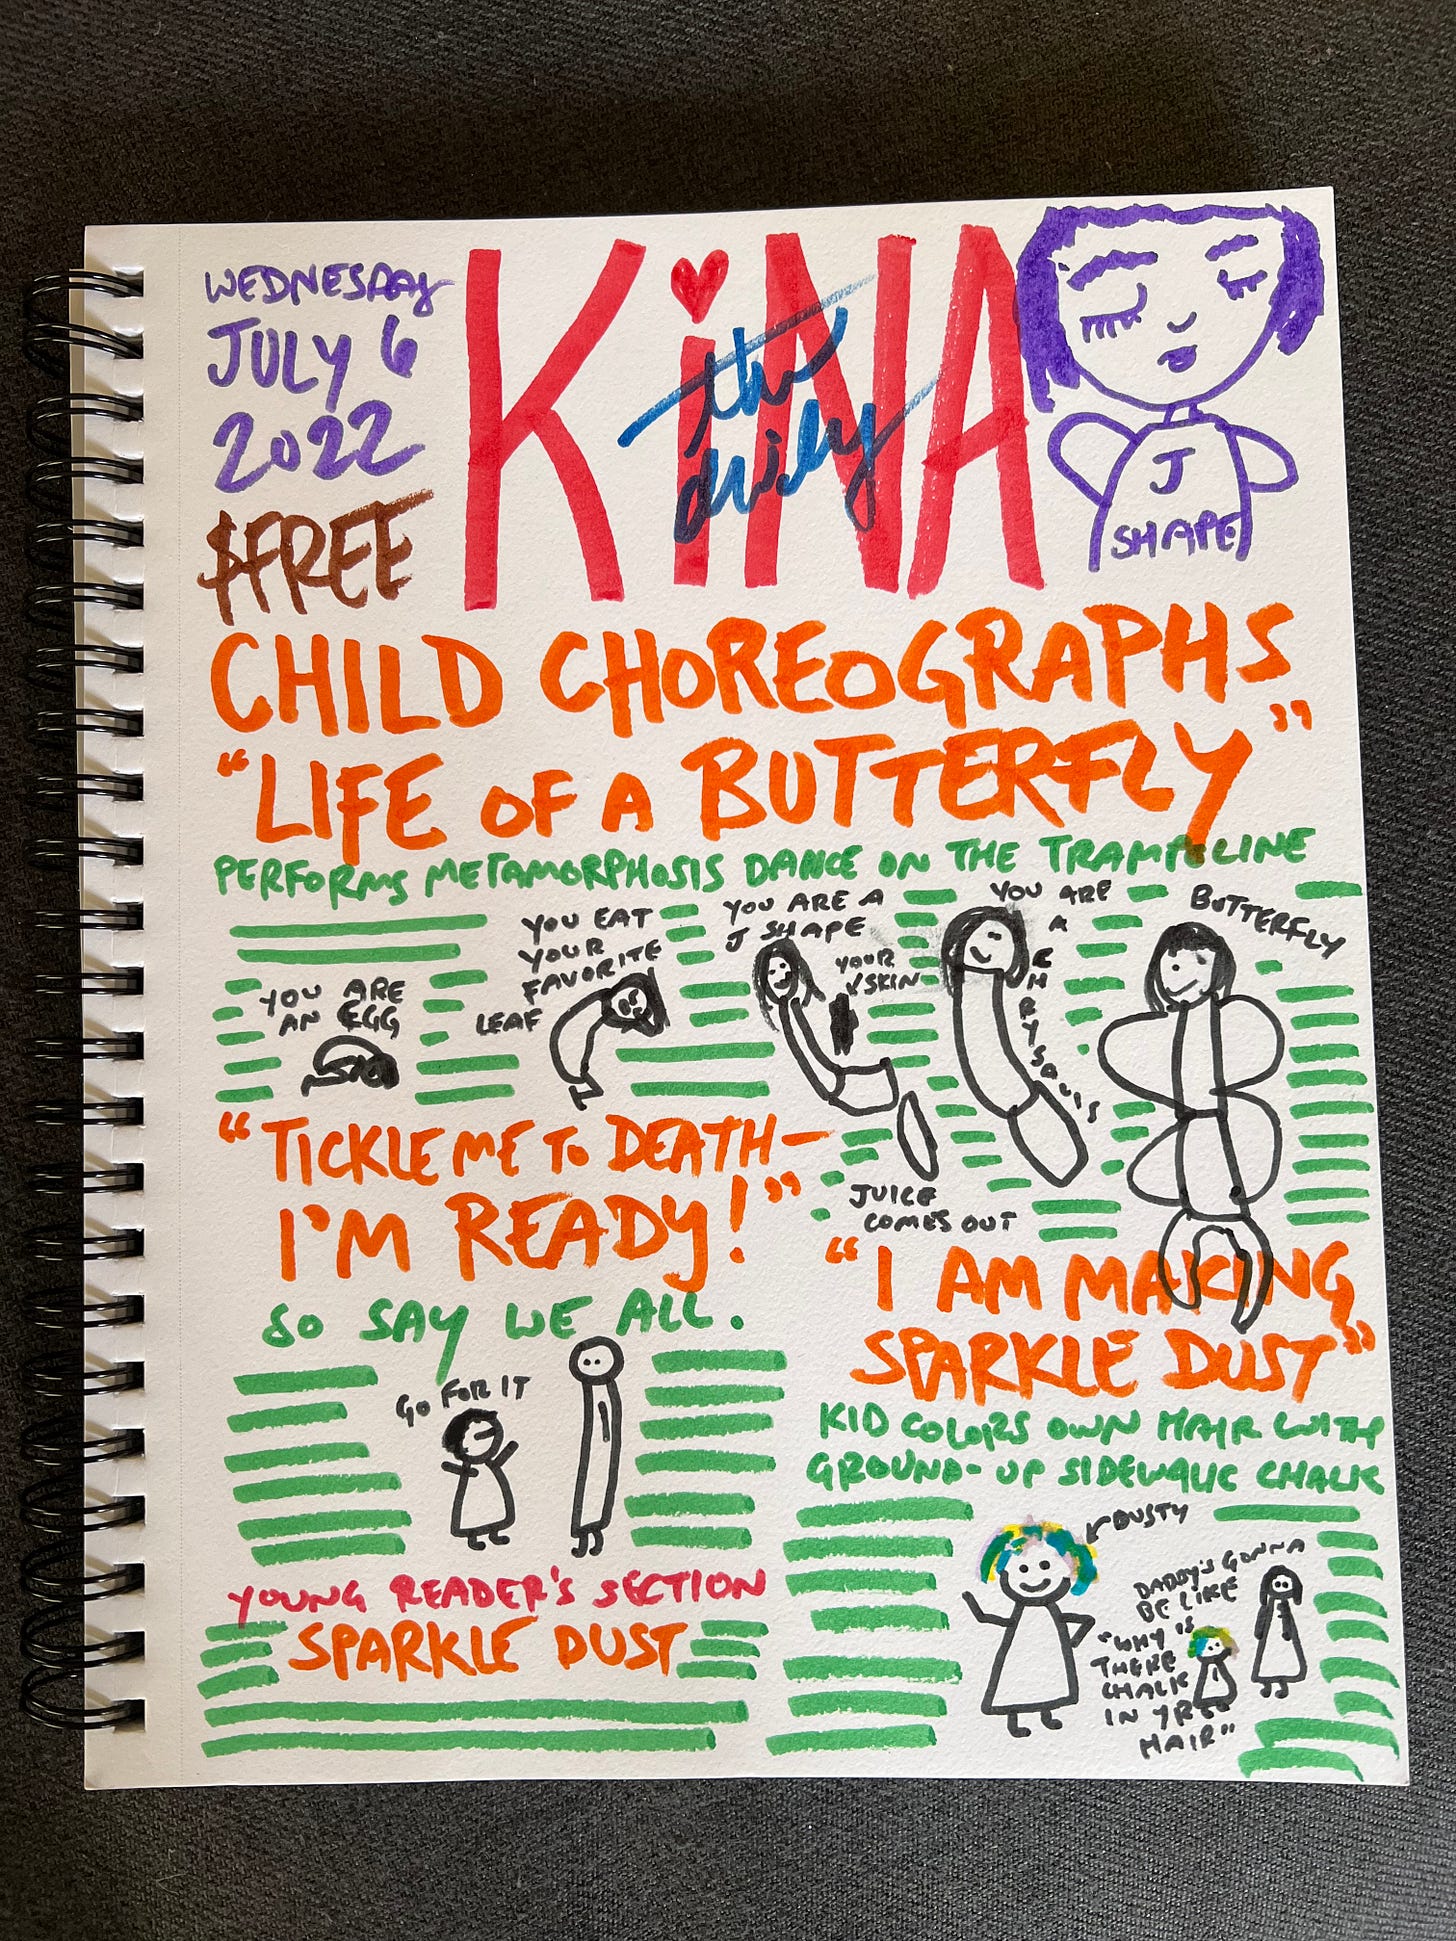 WEDNESDAY
JULY 6
2022
$FREE
KiNA
the daily
J
SHAPE
CHILD CHOREOGRAPHS
"LIFE OF A BUTTERFLY"
PERFORMS METAMORPHOSIS DANCE ON THE TRAMPOLINE
YOU ARE
AN EGG
YOU EAT
YOUR
FAVORITE
LEAF
YOU ARE A
J SHAPE
YOUR
SKIN
JUICE
COMES OUT
YOU ARE
A
CHRYSALIS
BUTTERFLY
"TICKLE ME TO DEATH—
I'M READY!"
SO SAY WE ALL.
GO FOR IT
"I AM MAKING
SPARKLE DUST"
KID COLORS OWN HAIR WITH
GROUND-UP SIDEWALK CHALK
DUSTY
DADDY'S GONNA
BE LIKE
"WHY IS
THERE
CHALK
IN YR
HAIR"
YOUNG READER'S SECTION
SPARKLE DUST